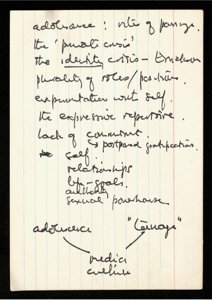 adolescence : rites of passage.
the 'private crisis'
the identity crisis - Erikson
plurality of roles/positions.
experimentation with self.
the expressive repertoire.
lack of commitment
↳ postponed gratification.
self.
relationships
life-goals.
authenticity
sexual powerhouse
adolescence "teenage"
media
culture